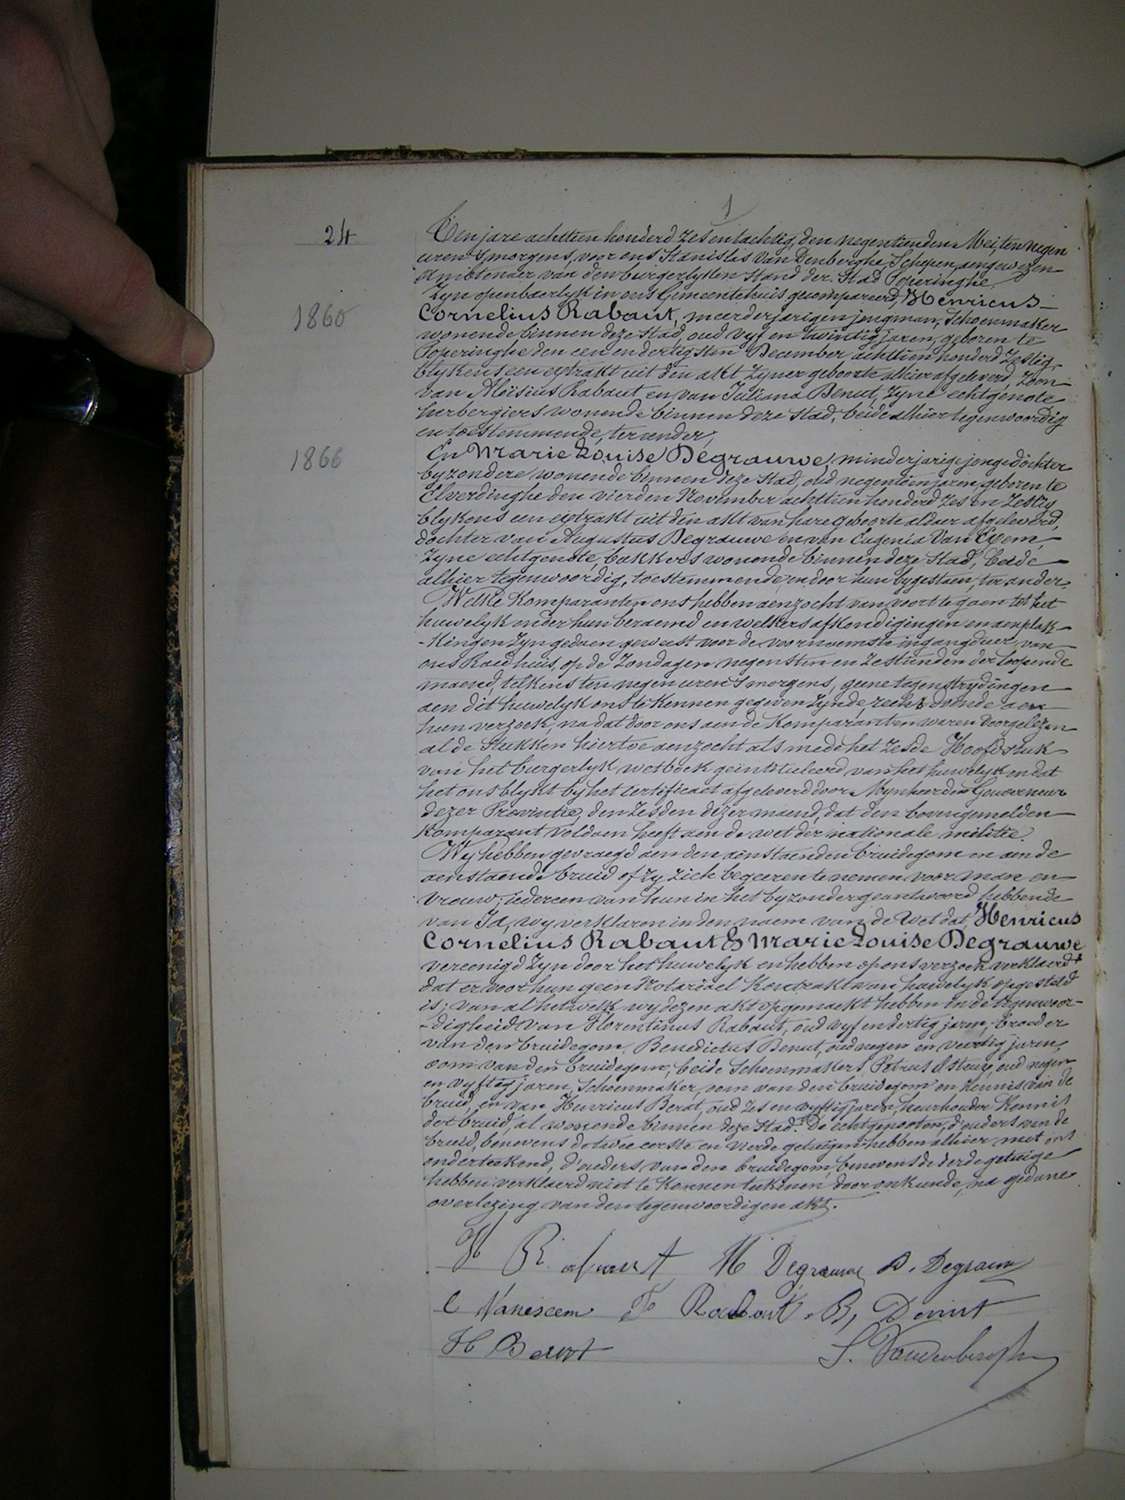 1
24
Ten jare achttien honderd zes en tachtig, den negentienden Mei, ten negen
uren 's morgens, voor ons Stanislis Van Denberghe, Schepen, aengewezen
Ambtenaer van den burgerlyken stand der Stad Poperinghe
Zyn openbaerlyk in ons Gemeentehuis gecompareerd, Henricus
1860
Cornelius Rabaut, meerderjarigen jongman, Schoenmaker
wonende binnen deze stad, oud vyf en twintig jaren, geboren te
Poperinghe den een en dertigsten December achttien honderd zestig,
blykens een extrakt uit den akt zyner geboorte alhier afgeleverd, zoon
van Aloïsius Rabaut en van Juliana Benut, zyne echtgenote
herbergiers wonende binnen deze stad, beide alhier tegenwoordig
en toestemmende, ter eender,
1866
En Marie Louise Degrauwe, minderjarige jongedochter
byzondere wonende binnen deze Stad, oud negentien jaren, geboren te
Elverdinghe den vierden November achttien honderd zes en zestig
blykens een extrakt uit den akt van hare geboorte aldaer afgeleverd,
dochter van Augustus Degrauwe en van Eugenia Van
Zyne echtgenote, bakkers wonende binnen deze Stad, beide
alhier tegenwoordig, toestemmende, en door hun bygestaen, ter ander.
Welke Komparanten ons hebben aenzocht van voort te gaen tot het
huwelyk onder hun beraemd en welkers afkondigingen en aenplak-
-kingen zyn gedaen geweest voor de voornaemste ingangdeur van
ons Raedhuis, op de Zondagen negensten en zestienden der loopende
maend, telkens ten negen uren 's morgens, geene tegenstrydingen
aen dit huwelyk ons te kennen gegeven zynde, recht doende aen
hun verzoek, na dat door ons aen de Komparanten waren voorgelezen
al de Stukken hiertoe aenzocht als mede het zesde Hoofdstuk
van het burgerlyk wetboek geintituleerd van het huwelyk en dat
het ons blykt by het certificaet afgeleverd door Mynheer den Gouverneur
dezer Provintie, den zesden dezer maend, dat den bovengemelden
Komparant voldaen heeft aen de wet der nationale militie.
Wy hebben gevraegd aen den aenstaenden bruidegom en aen de
aenstaende bruid of zy zich begeeren te nemen voor man en
vrouw; iedereen van hun in het byzonder geantwoord hebbende
van Ja, wy verklaren in den naem van de Wet dat Henricus
Cornelius Rabaut & Marie Louise Degrauwe
vereenigd zyn door het huwelyk en hebben op ons verzoek verklaerd
dat er voor hun geen Notarieel Kontrakt van huwelyk opgesteld
is; van al hetwelk wy dezen akt opgemaekt hebben in de tegenwoor-
-digheid van Florentinus Rabaut, oud vyf en dertig jaren, broeder
van den bruidegom, Benedictus Benut, oud negen en veertig jaren,
oom van den bruidegom, beide Schoenmakers, Petrus oud negen
en vyftig jaren, Schoenmaker, oom van den bruidegom en kennis van de
bruid, en van Henricus Berat, oud zes en vyftig jaren, Kennis
der bruid, al wonende binnen deze Stad. De echtgenooten, d'ouders van de
bruid, benevens de twee eerste en vierde getuigen hebben alhier met ons
onderteekend, d'ouders van den bruidegom, benevens de derde getuige
hebben verklaerd niet te konnen teekenen door onkunde, na gedane
overlezing van den tegenwoordigen akt.
H Rabaut M Degrauwe A. Degrauw
E Vaneecem F Rabaut B, Benut
H Berat S. Vandenberghe